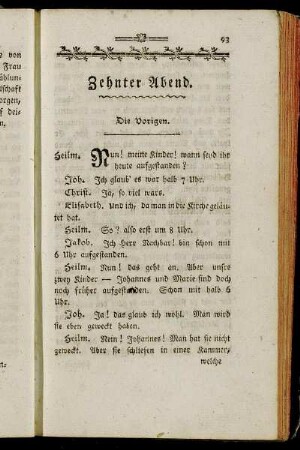 von
Frau
93
Zehnter Abend.
Die Vorigen.
Heilm. Nun! meine Kinder! wann seyd ihr
heute aufgestanden?
Joh. Ich glaub' es war halb 7 Uhr.
Christ. Ja, so viel wars.
Elisabeth. Und ich, da man in die Kirche geläu-
tet hat.
Heilm. So? also erst um 8 Uhr.
Jakob. Ich Herr Nachbar! bin schon mit
6 Uhr aufgestanden.
Heilm. Nun! das geht an. Aber unsre
zwey Kinder — Johannes und Marie sind doch
noch früher aufgestanden. Schon mit halb 6
Uhr.
Joh. Ja! das glaub ich wohl. Man wird
sie eben geweckt haben.
Heilm. Nein! Johannes! Man hat sie nicht
geweckt. Aber sie schliefen in einer Kammer,
welche